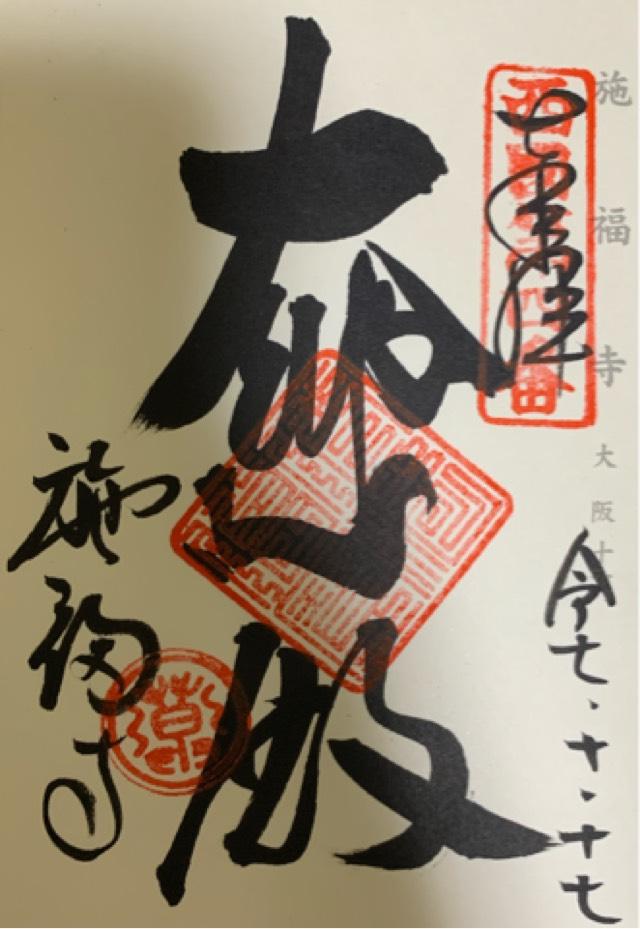 施福寺 大阪
西国第四番
奉拝
令七・十・十七
大悲殿
施福寺